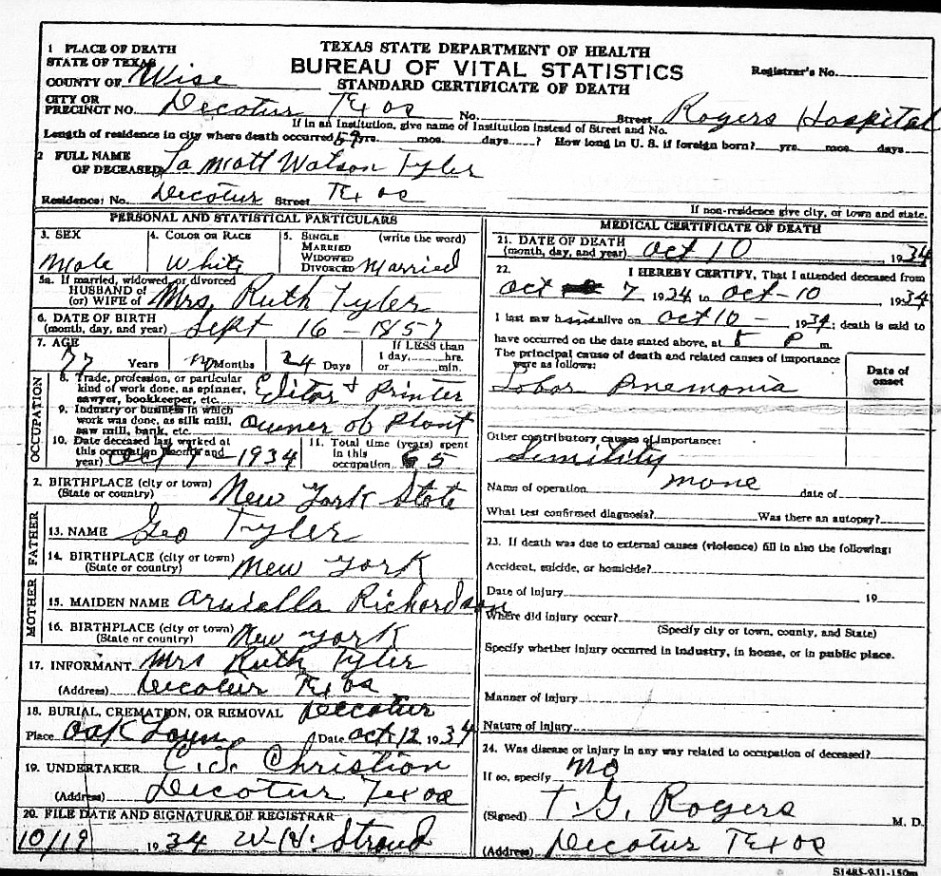 TEXAS STATE DEPARTMENT OF HEALTH
BUREAU OF VITAL STATISTICS
STANDARD CERTIFICATE OF DEATH
Registrar's No.
1 PLACE OF DEATH
STATE OF TEXAS
COUNTY OF Wise
CITY OR PRECINCT NO. Decatur Texas No. Street Rogers Hospital
If in an Institution, give name of Institution instead of Street and No.
Length of residence in city where death occurred 59 yrs. mos. days ? How long in U. S. if foreign born? yrs. mos. days
2 FULL NAME OF DECEASED La Mott Watson Tyler
Residence: No. Decatur Street Texas
If non-residence give city, or town and state.
PERSONAL AND STATISTICAL PARTICULARS
3. SEX Male
4. COLOR OR RACE White
5. SINGLE MARRIED WIDOWED DIVORCED (write the word) Married
5a. If married, widowed or divorced
HUSBAND of (or) WIFE of Mrs Ruth Tyler
6. DATE OF BIRTH (month, day, and year) Sept 16 - 1857
7. AGE 77 Years no Months 24 Days If LESS than 1 day, hrs. or min.
OCCUPATION
8. Trade, profession, or particular kind of work done, as spinner, sawyer, bookkeeper, etc. Editor & Printer
9. Industry or business in which work was done, as silk mill, saw mill, bank, etc. Owner of Plant
10. Date deceased last worked at this occupation (month and year) Oct 7 - 1934
11. Total time (years) spent in this occupation 65
2. BIRTHPLACE (city or town) (State or country) New York State
FATHER
13. NAME Geo Tyler
14. BIRTHPLACE (city or town) (State or country) New York
MOTHER
15. MAIDEN NAME Richardson
16. BIRTHPLACE (city or town) (State or country) New York
17. INFORMANT Mrs Ruth Tyler
(Address) Decatur Texas
18. BURIAL, CREMATION, OR REMOVAL Decatur
Place Oak Lawn Date Oct 12 1934
19. UNDERTAKER Christian
(Address) Decatur Texas
20. FILE DATE AND SIGNATURE OF REGISTRAR
10/19 1934 W. H. Stroud
MEDICAL CERTIFICATE OF DEATH
21. DATE OF DEATH (month, day, and year) Oct 10 1934
22. I HEREBY CERTIFY, That I attended deceased from
Oct 7 1934 to Oct - 10 1934
I last saw him alive on Oct 10 - 1934; death is said to
have occurred on the date stated above, at P m.
The principal cause of death and related causes of importance were as follows:
Date of onset
Lobar Pnemonia
Other contributory causes of importance:
Senility
Name of operation none date of
What test confirmed diagnosis? Was there an autopsy?
23. If death was due to external causes (violence) fill in also the following:
Accident, suicide, or homicide?
Date of Injury 19
Where did injury occur?
(Specify city or town, county, and State)
Specify whether injury occurred in industry, in home, or in public place.
Manner of Injury
Nature of Injury
24. Was disease or injury in any way related to occupation of deceased?
If so, specify No
(Signed) T. G. Rogers M. D.
(Address) Decatur Texas
S1485-931-150m